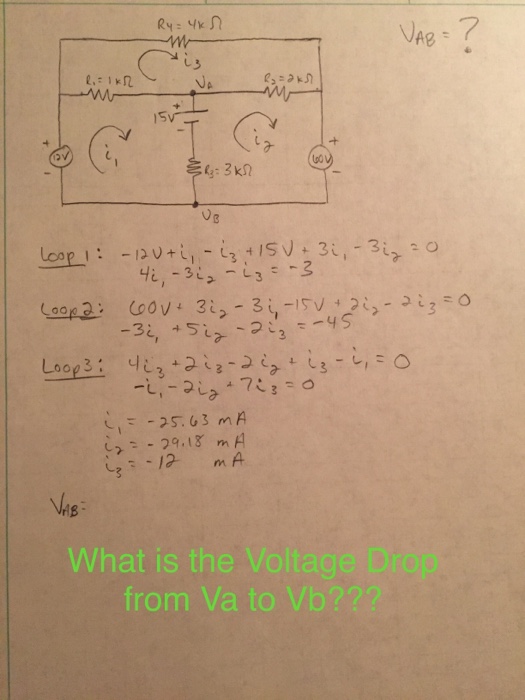 R4 = 4kΩ
VAB = ?
i3
R1 = 1kΩ
VA
R2 = 2kΩ
15V
+
-
i1
i2
+
12V
-
+
60V
-
R3 = 3kΩ
VB
Loop 1: -12V + i1 - i3 + 15V + 3i1 - 3i2 = 0
4i1 - 3i2 - i3 = -3
Loop 2: 60V + 3i2 - 3i1 - 15V + 2i2 - 2i3 = 0
-3i1 + 5i2 - 2i3 = -45
Loop 3: 4i3 + 2i3 - 2i2 + i3 - i1 = 0
-i1 - 2i2 + 7i3 = 0
i1 = -25.63 mA
i2 = -29.18 mA
i3 = -12 mA
VAB =
What is the Voltage Drop
from Va to Vb???